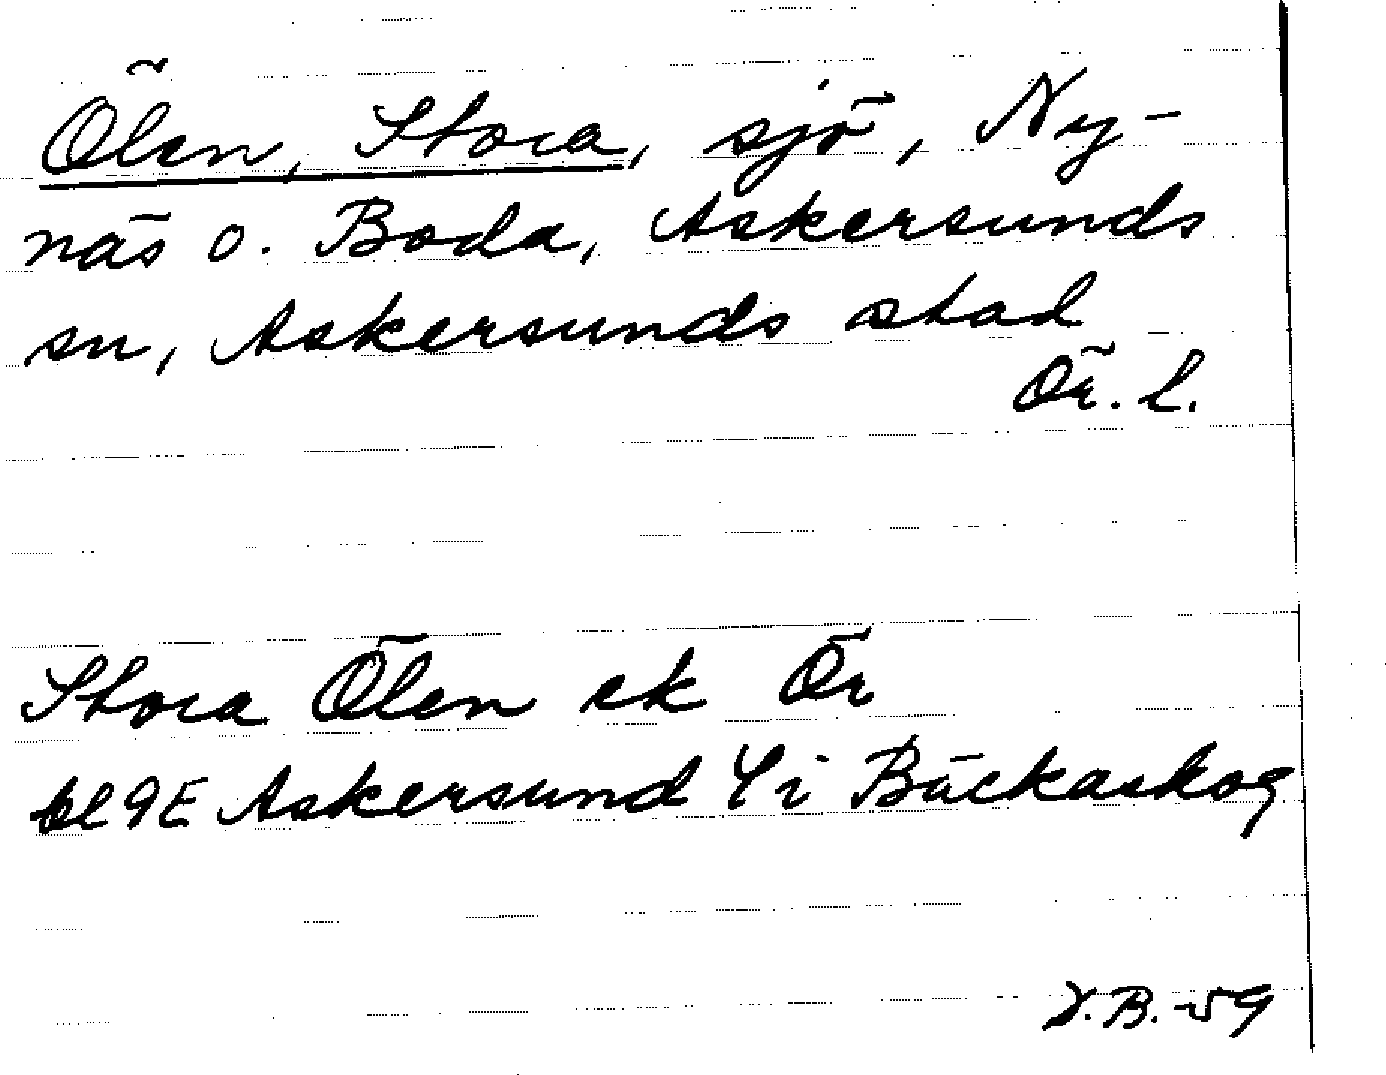 Ölen, Stora, sjö, Ny-
näs o. Boda, Askersunds
sn, Askersunds stad
Ör. l.
Stora Ölen ek Ör
bl 9E Askersund Y i Bäckaskog
B. -59